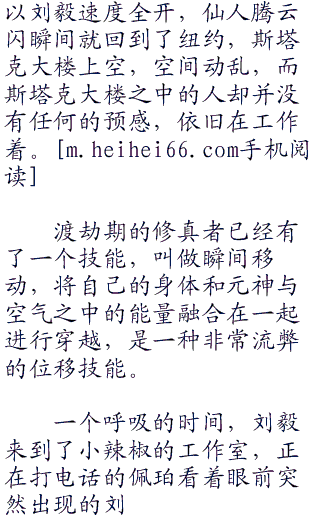 以刘毅速度全开，仙人腾云
闪瞬间就回到了纽约，斯塔
克大楼上空，空间动乱，而
斯塔克大楼之中的人却并没
有任何的预感，依旧在工作
着。[m.heihei66.com手机阅
读]
渡劫期的修真者已经有
了一个技能，叫做瞬间移
动，将自己的身体和元神与
空气之中的能量融合在一起
进行穿越，是一种非常流弊
的位移技能。
一个呼吸的时间，刘毅
来到了小辣椒的工作室，正
在打电话的佩珀看着眼前突
然出现的刘